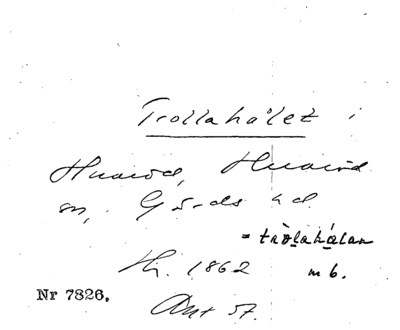 Trollahålet i
Huaröd, Huaröd
sn, Gärds hd.
= tròlahálan
Th. 1862 m b.
Nr 7826.
Ant 57.